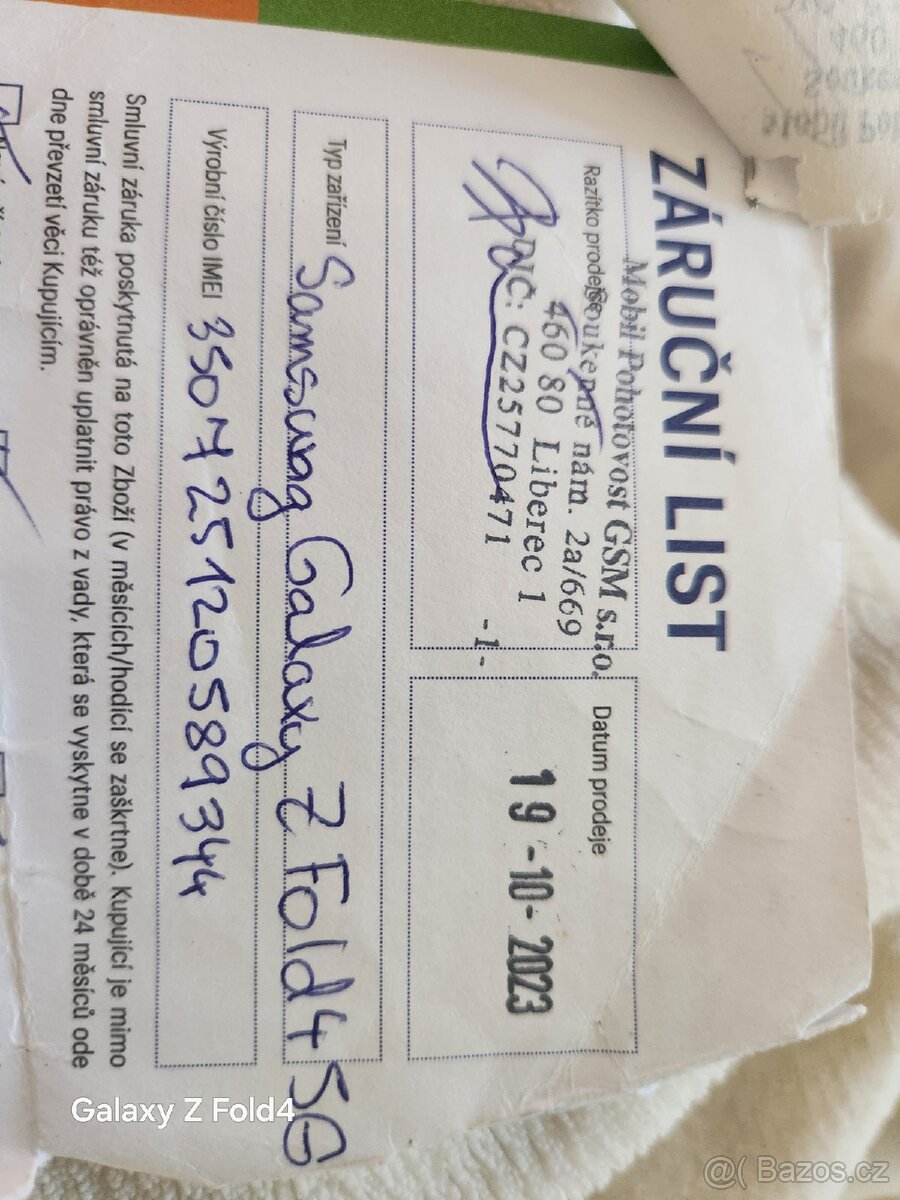 ZÁRUČNÍ LIST
Razítko prodejce
Mobil Pohotovost GSM s.r.o.
Soukenné nám. 2a/669
460 80 Liberec 1
DIČ: CZ25770471
-1-
Datum prodeje
19 -10- 2023
Typ zařízení Samsung Galaxy Z Fold4 5G
Výrobní číslo IMEI 350725120589344
Smluvní záruka poskytnutá na toto Zboží (v měsících/hodící se zaškrtne). Kupující je mimo
smluvní záruku též oprávněn uplatnit právo z vady, která se vyskytne v době 24 měsíců ode
dne převzetí věci Kupujícím.
Galaxy Z Fold4
Bazos.cz